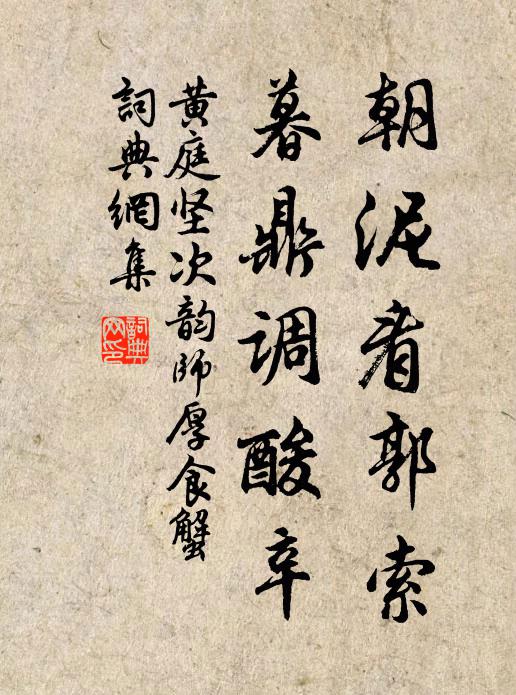 朝泥看郭索
暮鼎調酸辛
黄庭坚次韵師厚食蟹
詞典網集
詞典网印